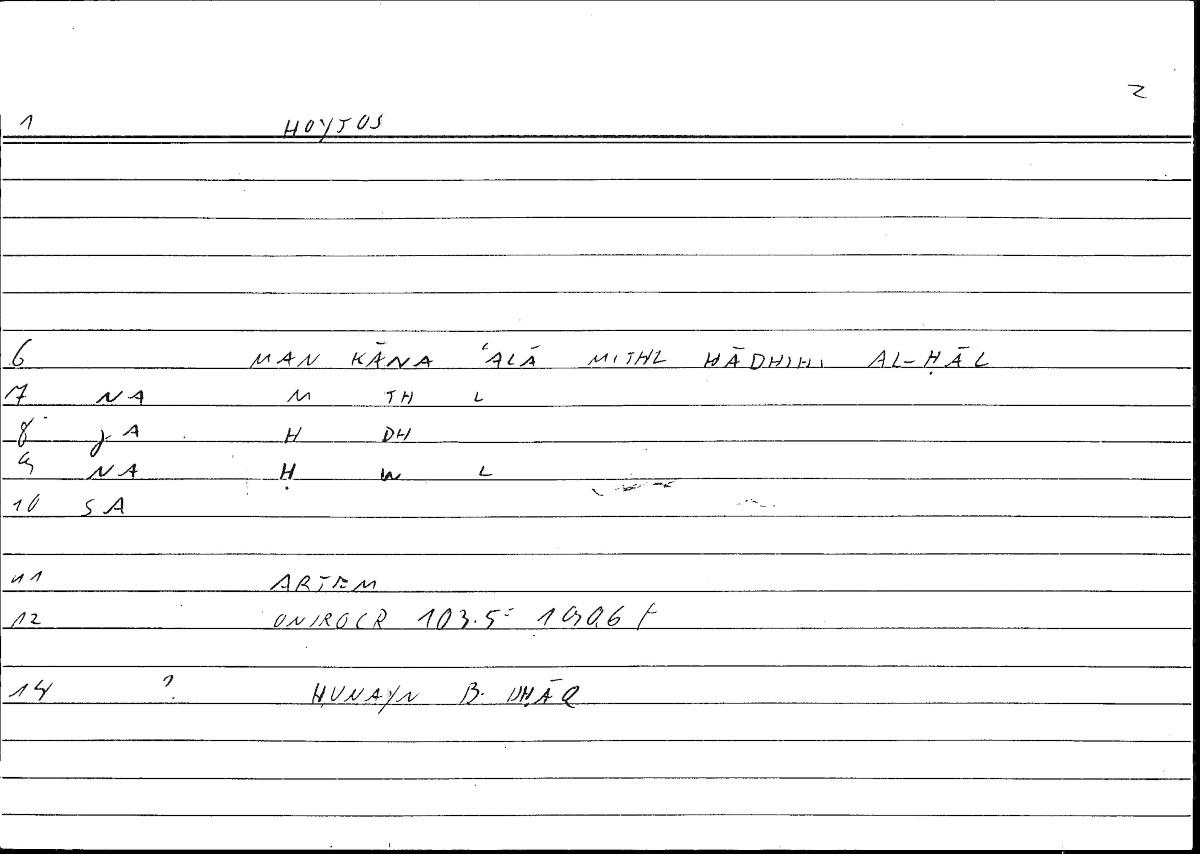 2
1 HOYTOS
6 MAN KĀNA ʿALĀ MITHL HĀDHIHI AL-ḤĀL
7 NA M TH L
8 JA H DH
9 NA Ḥ W L
10 SA
11 ARTEM
12 ONIROCR 103.5 = 190.6 f
14 ? ḤUNAYN B. ISḤĀQ